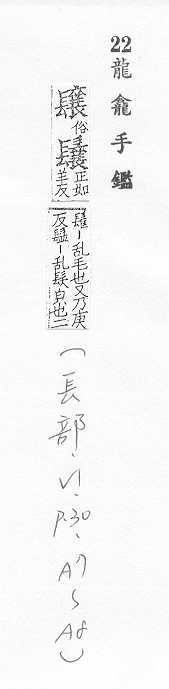 22 龍龕手鑑
俗 正如
羊反
亂毛也又乃庚
反 亂髮皃也二
(長部.V1.P.30.A7~A8)